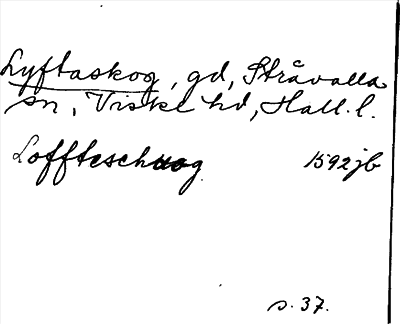 Lyftaskog, gd, Stråvalla
sn, Viske hd, Hall. l.
Loffteschuog 1592 jb
s. 37.